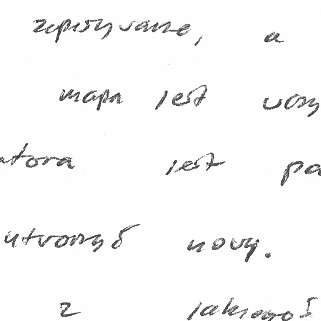 zapisywane, a
mapa jest
jest
utworzyć nowy.
z jakiegoś